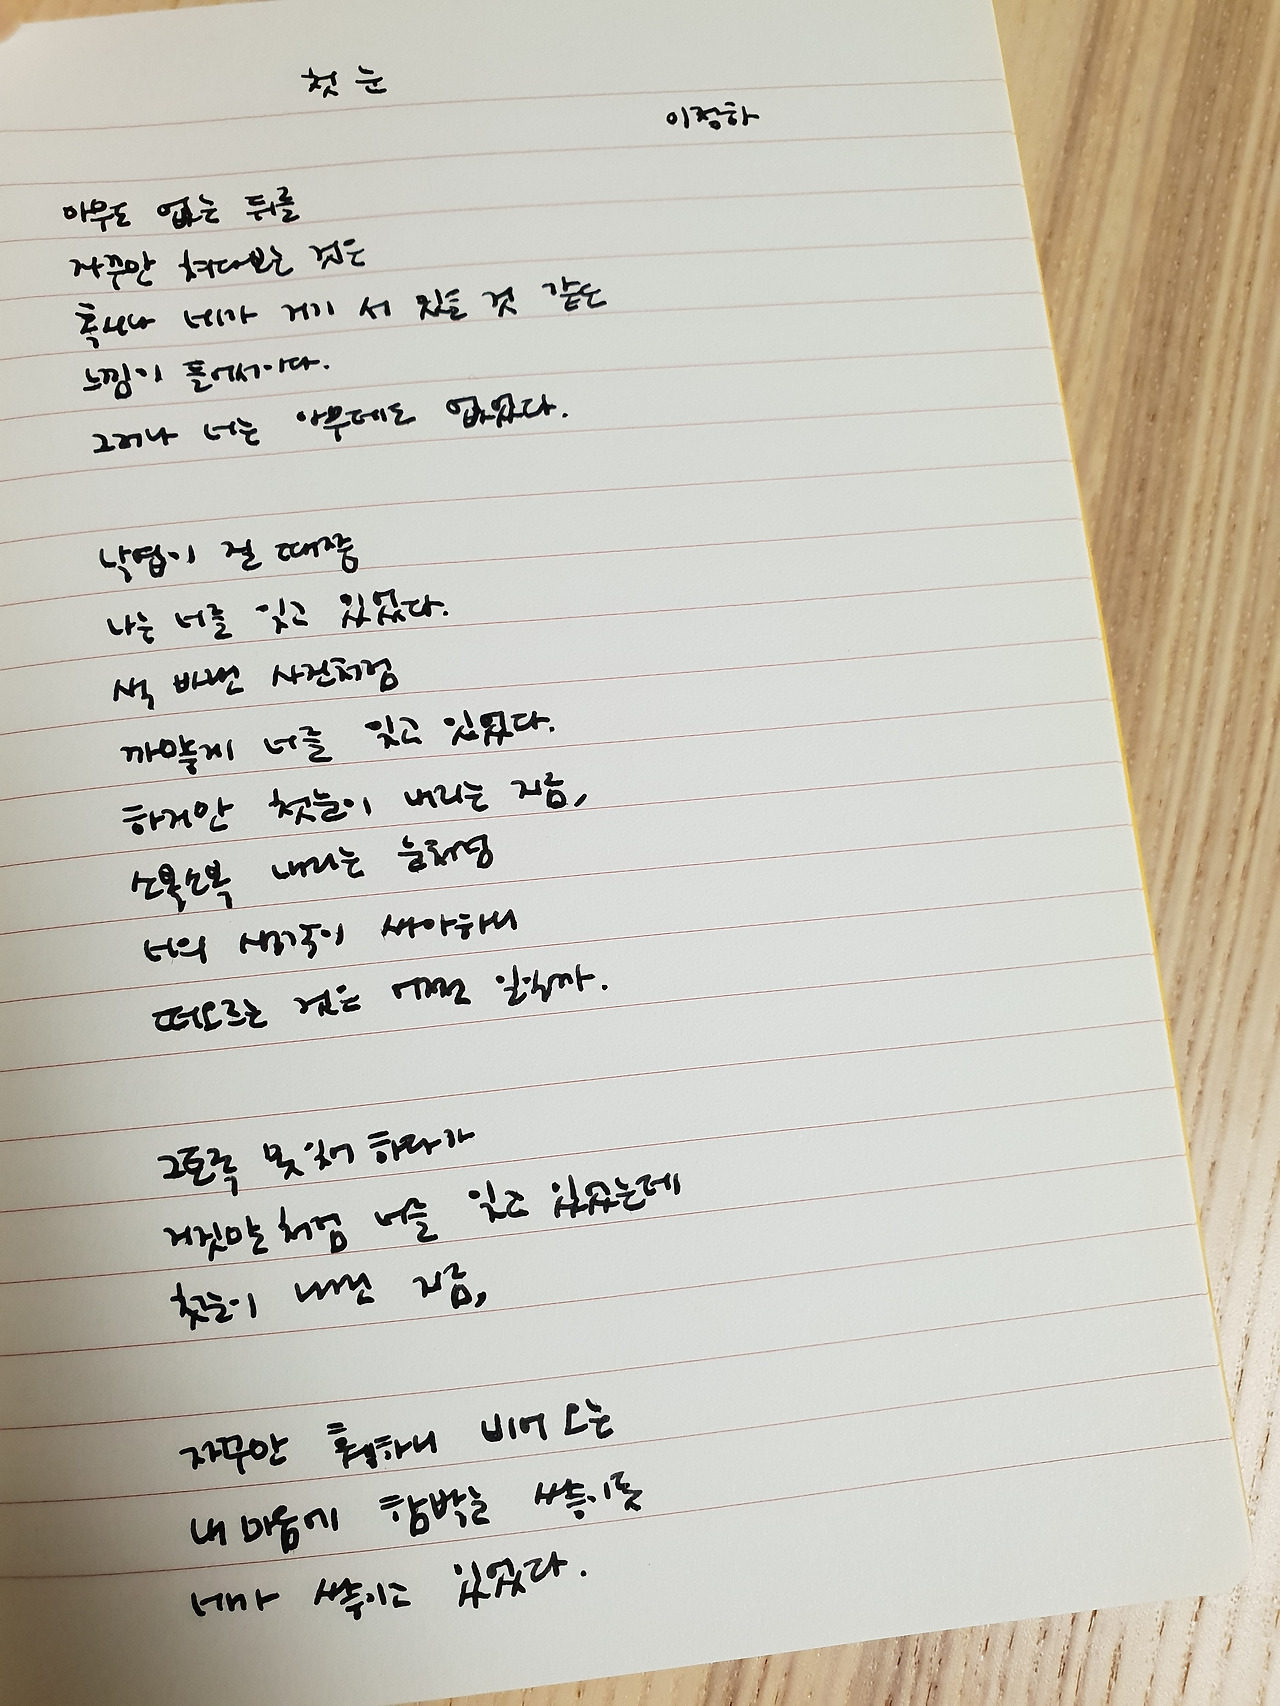 첫 눈
이정하
아무도 없는 뒤를
자꾸만 쳐다보는 것은
혹시나 네가 거기 서 있을 것 같은
느낌이 들어서이다.
그러나 너는 아무데도 없었다.
낙엽이 질 때쯤
나는 너를 잊고 있었다.
색 바랜 사진처럼
까맣게 너를 잊고 있었다.
하지만 첫눈이 내리는 지금,
소복소복 내리는 눈처럼
너의 생각이 싸아하니
떠오르는 것은 어쩐 일일까.
그토록 못잊어 하다가
거짓말처럼 너를 잊고 있었는데
첫눈이 내린 지금,
자꾸만 휑하니 비어 오는
내 마음에 함박눈 쌓이듯
네가 쌓이고 있었다.